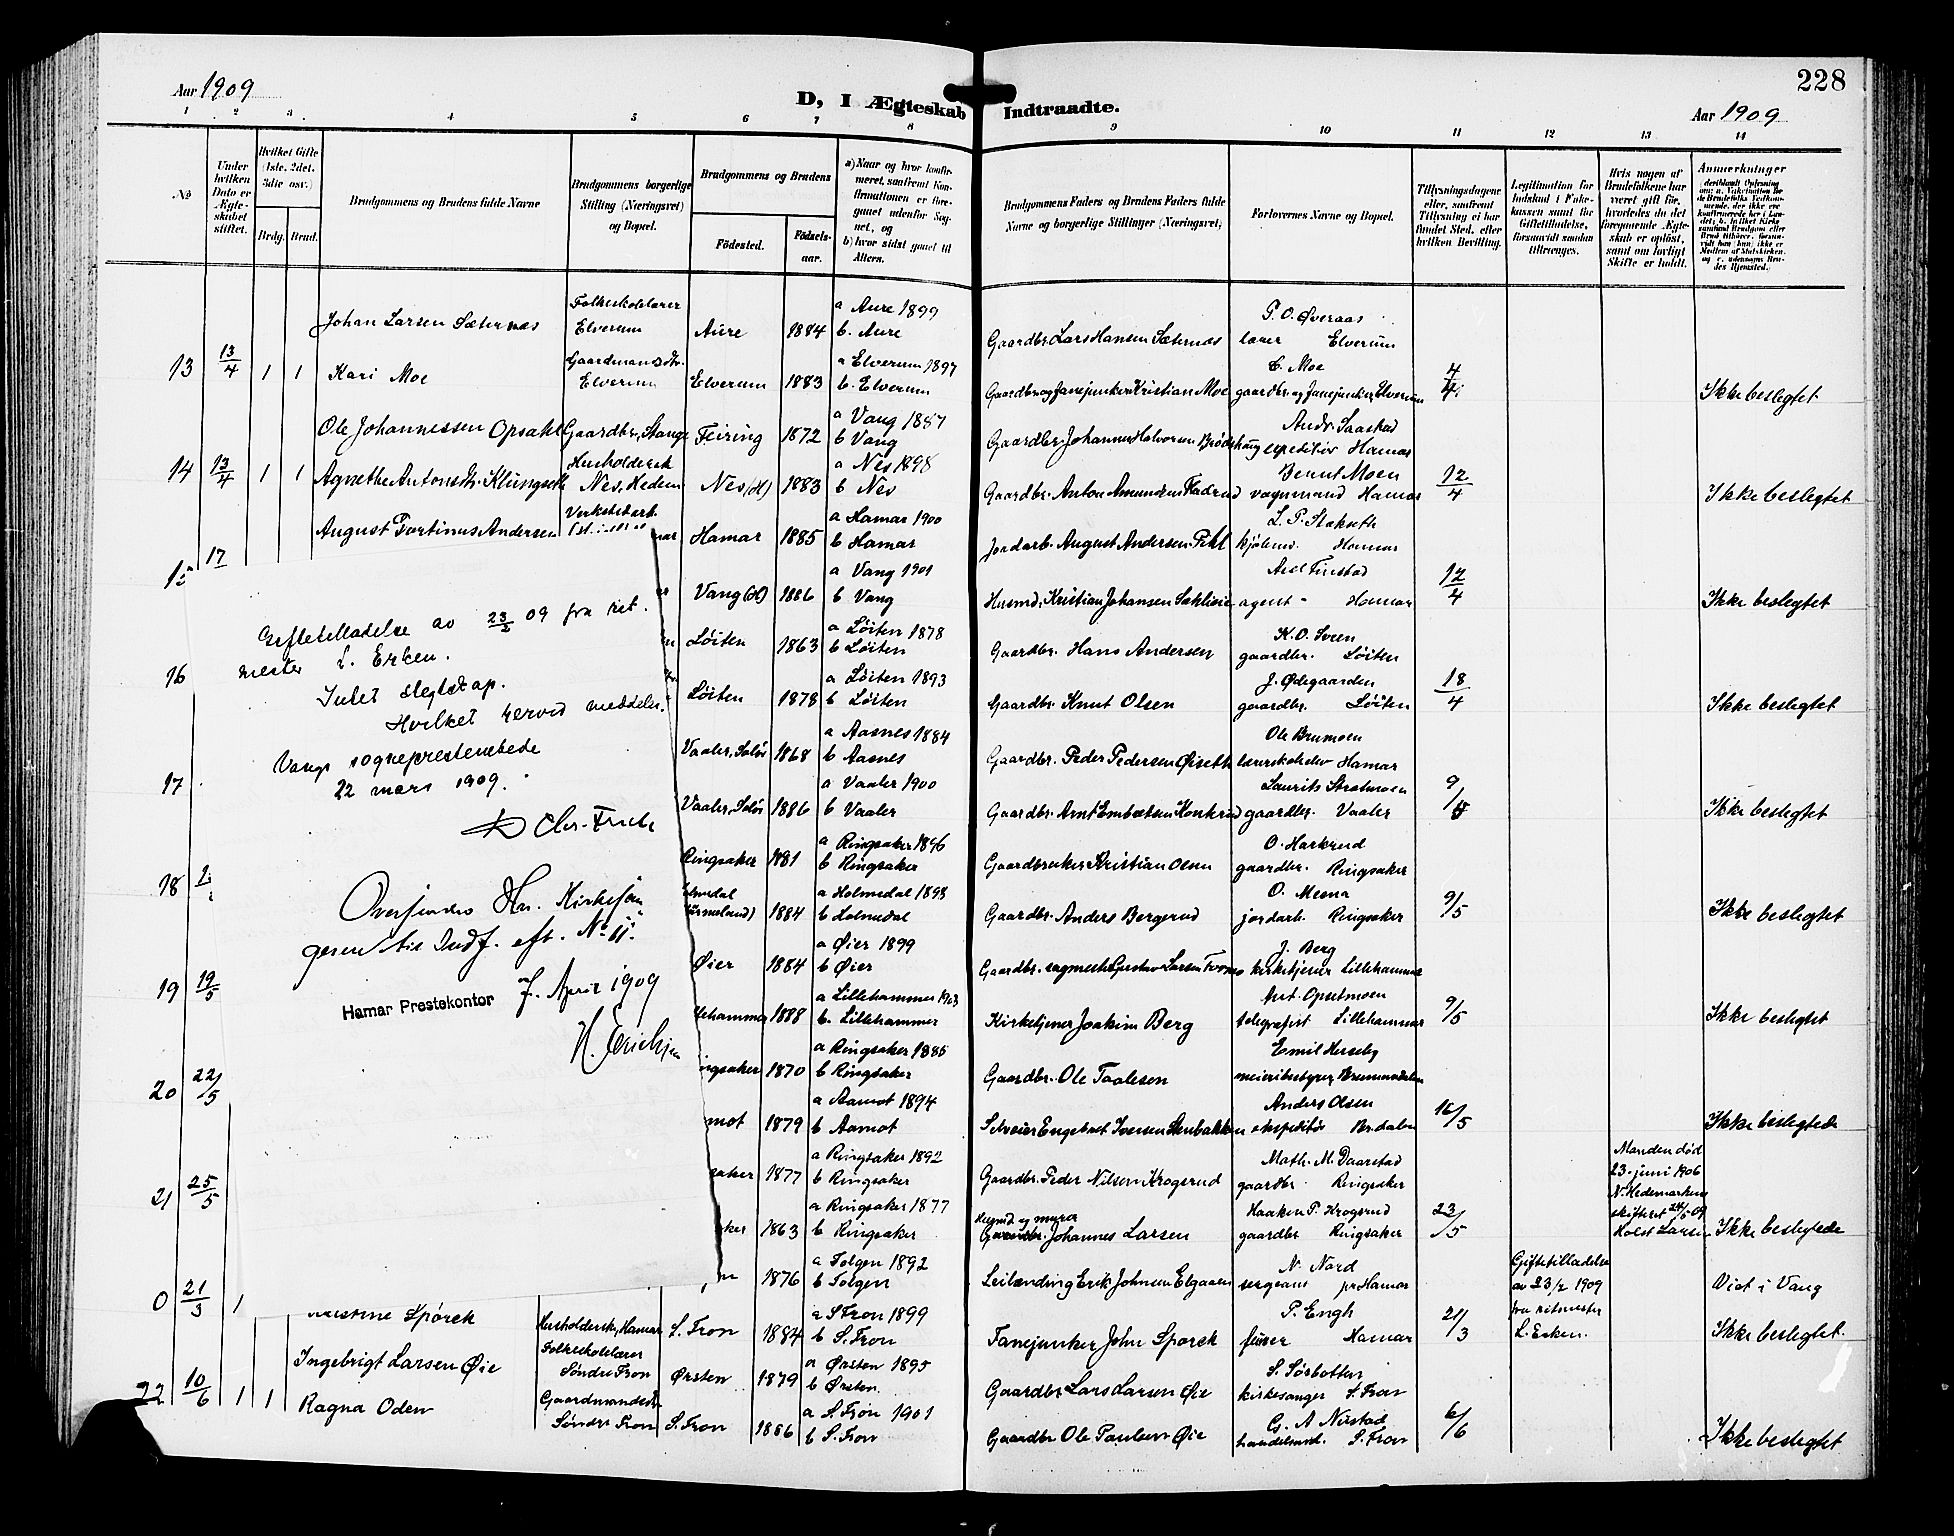 228
Aar 1909
D, I Ægteskab Indtraadte.
Aar 1909
1 2 3 4 5 6 7 8 9 10 11 12 13 14
No.
Under hvilken Dato er Ægteskabet stiftet.
Hvilket Gifte (1ste, 2det, 3die osv.)
Brdg. Brud.
Brudgommens og Brudens fulde Navne
Brudgommens borgerlige Stilling (Næringsvei) og Bopæl.
Brudgommens og Brudens
Fødested. Fødselsaar.
a) Naar og hvor konfirmeret, saafremt Konfirmationen er foregaaet udenfor Sognet, og
b) hvor sidst gaaet til Alters.
Brudgommens Faders og Brudens Faders fulde Navne og borgerlige Stillinger (Næringsvei)
Forlovernes Navne og Bopæl.
Tillysningsdagene eller, saafremt Tillysning ei har fundet Sted, efter hvilken Bevilling.
Legitimation for Indskud i Enkekassen samt for Giftetilladelse, forsaavidt saadan tiltrænges.
Hvis nogen af Brudefolkene har været gift før, hvorledes da det foregaaende Ægteskab er opløst, samt om lovligt Skifte er holdt.
Anmerkninger
Johan Larsen Sæternes Folkeskolelærer Elverum Aure 1884 a Aure 1899 b. Aure Gaardbr. Lars Hansen Sæternes P. O. Øveraas lærer Elverum
13 13/4 1 1 Kari Moe Gaardmandsdtr. Elverum Elverum 1883 a Elverum 1897 b. Elverum Gaardbr. og fanejunker Kristian Moe C. Moe gaardbr. og fanejunker Elverum 4/4 Ikke beslegtet.
Ole Johannessen Opsahl Gaardbr., Stange Feiring 1872 a Vang 1887 b Vang Gaardbr. Johannes Halvorsen Andr. Saastad expeditør Hamar
14 13/4 1 1 Agnethe Antonsdtr. Nes, Hedem Nes (H) 1883 a Nes 1898 b Nes Gaardbr. Anton Amundsen Bernt Moen vognmand Hamar 12/4 Ikke beslegtet
August Fortinus Andersen Hamar 1885 a Hamar 1900 b Hamar Jordarb. August Andersen L. P. Stakseth Hamar
15 17 Vang (H) 1886 a Vang 1901 b Vang Husmd. Kristian Johansen agent Hamar 12/4 Ikke beslegtet
Løiten 1863 a Løiten 1878 b Løiten Gaardbr. Hans Andersen K. O. Sveen gaardbr. Løiten
16 Løiten 1878 a Løiten 1893 b Løiten Gaardbr. Knut Olsen J. Ødegaarden gaardbr. Løiten 18/4 Ikke beslegtet
Vaaler, Solør 1868 a Aasnes 1884 b Aasnes Gaardbr. Peder Pedersen Øiseth Ole Brumoen Hamar
17 Vaaler, Solør 1886 a Vaaler 1900 b Vaaler Gaardbr. Arnt Embretsen Laurits Stratmoen gaardbr. Vaaler 9/5 Ikke beslegtet
Ringsaker 1881 a Ringsaker 1896 b Ringsaker Gaardbruker Kristian Olsen O. Harkrud gaardbr. Ringsaker
18 1884 a Holmedal 1898 b Holmedal Gaardbr. Anders Bergerud O. Mesna jordarb. Ringsaker 9/5 Ikke beslegtet
Øier 1884 a Øier 1899 b Øier J. Berg kirketjener Lillehammer
19 19/5 1888 a Lillehammer 1903 b. Lillehammer Kirketjener Joakim Berg Ant. Opsetmoen telegrafist Lillehammer 9/5 Ikke beslegtet
1870 a Ringsaker 1885 b Ringsaker Gaardbr. Ole Taalesen Emil Herseby meieribestyrer
20 22/5 1879 a Aamot 1894 b Aamot Selveier Engebret Iversen Stenbakken Anders Olsen ekspeditør 16/5 Ikke beslegtede
1877 a Ringsaker 1892 b Ringsaker Gaardbr. Peder Nilsen Krogsrud Math. M. Daarstad gaardbr Ringsaker
21 25/5 1863 a Ringsaker 1877 b Ringsaker Husmd og murer Johannes Larsen Haaken P. Krogsrud gaardbr Ringsaker 23/5 Manden død 23. juni 1906 N. Hedemarkens skifteret Holst Larsen Ikke beslegtede
1876 a Tolgen 1892 b Tolgen Leilænding Erik Johnsen Elgaaen N. Nord sergeant pr Hamar Giftetilladelse av 23/2 1909 fra ritmester L. Erken. Viet i Vang
0 21/3 1 Spørck Husholderske, Hamar S. Fron 1884 a S. Fron 1899 b S. Fron Fanejunker John Spørck P. Engh Hamar 21/3 Ikke beslegtet.
Ingebrigt Larsen Øie Folkeskolelærer Søndre Fron Ørsten 1879 a Ørsten 1895 b Ørsten. Gaardbr Lars Larsen Øie S. Sørbotten kirkesanger S. Fron
22 10/6 1 1 Ragna Oden Gaardmandsdtr Søndre Fron S. Fron 1886 a S. Fron 1901 b S. Fron Gaardbr Ole Paulsen Øie G. A. Nustad handelsmd. S. Fron 6/6 Ikke beslegtet
Giftetilladelse av 23/2 09 fra rit.
mester L. Erken.
Intet slegtskap.
Hvilket herved meddeles.
Vangs sogneprestembede
22 mars 1909.
Oversendes Hr. Kirkesan
geren til Indf. eft. No 11.
Hamar Prestekontor 7. April 1909
H. Erichsen